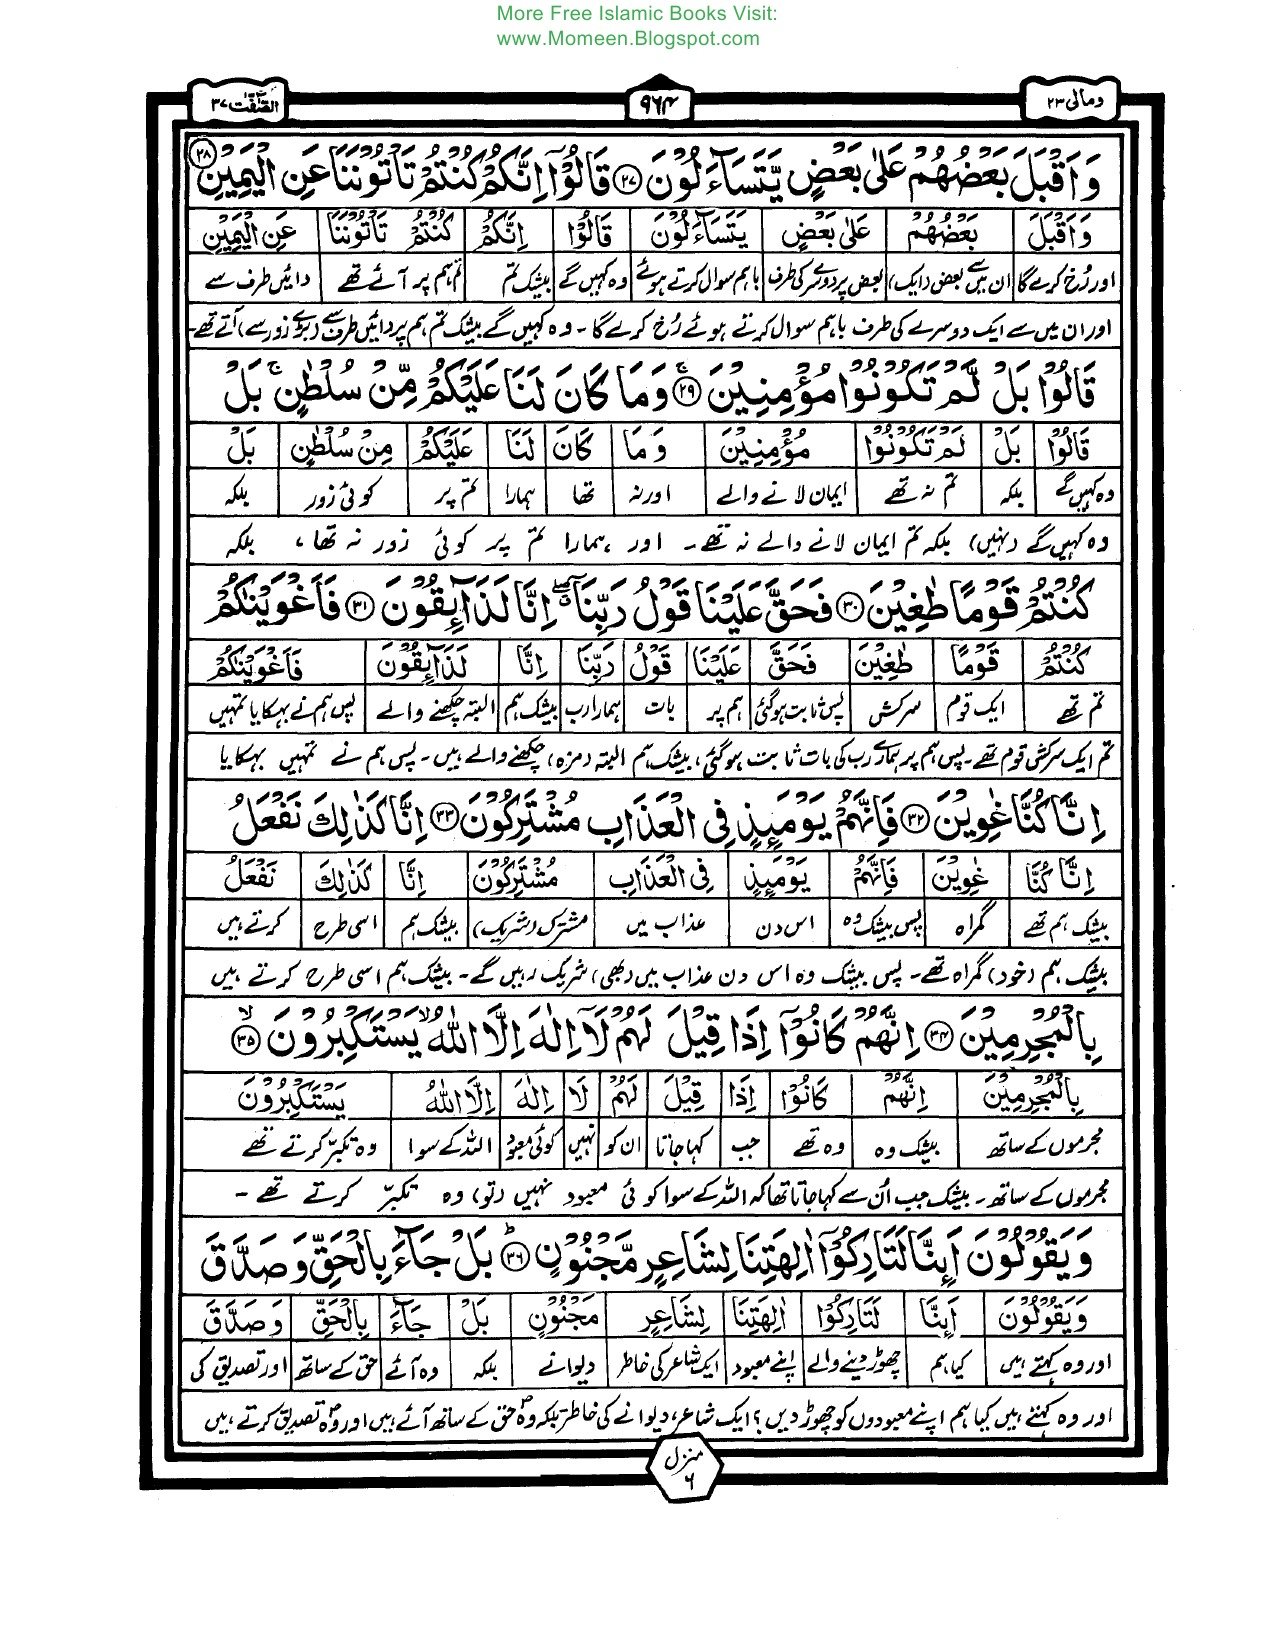 More Free Islamic Books Visit:
www.Momeen.Blogspot.com
ومالی ۲۳
۹۶۴
الصّٰفّٰت ۳۷
وَاَقْبَلَ بَعْضُهُمْ عَلٰى بَعْضٍ يَّتَسَآءَلُوْنَ ۲۷ قَالُوْۤا اِنَّكُمْ كُنْتُمْ تَاْتُوْنَنَا عَنِ الْيَمِيْنِ ۲۸
وَاَقْبَلَ بَعْضُهُمْ عَلٰى بَعْضٍ يَتَسَآءَلُوْنَ قَالُوْۤا اِنَّكُمْ كُنْتُمْ تَاْتُوْنَنَا عَنِ الْيَمِيْنِ
اور رُخ کرے گا ان میں سے بعض (ایک) بعض پر دوسرے کی طرف باہم سوال کرتے ہوئے وہ کہیں گے بیشک تم تم ہم پر آئے تھے دائیں طرف سے
اور ان میں سے ایک دوسرے کی طرف باہم سوال کرتے ہوئے رُخ کرے گا۔ وہ کہیں گے بیشک تم ہم پر دائیں طرف سے (بڑے زور سے) آتے تھے۔
قَالُوْا بَلْ لَّمْ تَكُوْنُوْا مُؤْمِنِيْنَ ۲۹ وَمَا كَانَ لَنَا عَلَيْكُمْ مِّنْ سُلْطٰنٍ بَلْ
قَالُوْا بَلْ لَمْ تَكُوْنُوْا مُؤْمِنِيْنَ وَمَا كَانَ لَنَا عَلَيْكُمْ مِنْ سُلْطٰنٍ بَلْ
وہ کہیں گے بلکہ تم نہ تھے ایمان لانے والے اور نہ تھا ہمارا تم پر کوئی زور بلکہ
وہ کہیں گے (نہیں) بلکہ تم ایمان لانے والے نہ تھے۔ اور ہمارا تم پر کوئی زور نہ تھا، بلکہ
كُنْتُمْ قَوْمًا طٰغِيْنَ ۳۰ فَحَقَّ عَلَيْنَا قَوْلُ رَبِّنَاۤ اِنَّا لَذَآئِقُوْنَ ۳۱ فَاَغْوَيْنٰكُمْ
كُنْتُمْ قَوْمًا طٰغِيْنَ فَحَقَّ عَلَيْنَا قَوْلُ رَبِّنَا اِنَّا لَذَآئِقُوْنَ فَاَغْوَيْنٰكُمْ
تم تھے ایک قوم سرکش پس ثابت ہوگئی ہم پر بات ہمارا رب بیشک ہم البتہ چکھنے والے پس ہم نے بہکایا تمہیں
تم ایک سرکش قوم تھے۔ پس ہم پر ہمارے رب کی بات ثابت ہوگئی، بیشک ہم البتہ (مزہ) چکھنے والے ہیں۔ پس ہم نے تمہیں بہکایا
اِنَّا كُنَّا غٰوِيْنَ ۳۲ فَاِنَّهُمْ يَوْمَئِذٍ فِى الْعَذَابِ مُشْتَرِكُوْنَ ۳۳ اِنَّا كَذٰلِكَ نَفْعَلُ
اِنَّا كُنَّا غٰوِيْنَ فَاِنَّهُمْ يَوْمَئِذٍ فِى الْعَذَابِ مُشْتَرِكُوْنَ اِنَّا كَذٰلِكَ نَفْعَلُ
بیشک ہم تھے گمراہ پس بیشک وہ اس دن عذاب میں مشترک (شریک) بیشک ہم اسی طرح کرتے ہیں
بیشک ہم (خود) گمراہ تھے۔ پس بیشک وہ اس دن عذاب میں (بھی) شریک رہیں گے۔ بیشک ہم اسی طرح کرتے ہیں
بِالْمُجْرِمِيْنَ ۳۴ اِنَّهُمْ كَانُوْۤا اِذَا قِيْلَ لَهُمْ لَاۤ اِلٰهَ اِلَّا اللّٰهُ يَسْتَكْبِرُوْنَ ۳۵
بِالْمُجْرِمِيْنَ اِنَّهُمْ كَانُوْۤا اِذَا قِيْلَ لَهُمْ لَا اِلٰهَ اِلَّا اللّٰهُ يَسْتَكْبِرُوْنَ
مجرموں کے ساتھ بیشک وہ وہ تھے جب کہا جاتا ان کو نہیں کوئی معبود اللہ کے سوا وہ تکبّر کرتے تھے
مجرموں کے ساتھ۔ بیشک جب اُن سے کہا جاتا تھا کہ اللہ کے سوا کوئی معبود نہیں (تو) وہ تکبّر کرتے تھے۔
وَيَقُوْلُوْنَ اَئِنَّا لَتَارِكُوْۤا اٰلِهَتِنَا لِشَاعِرٍ مَّجْنُوْنٍ ۳۶ بَلْ جَآءَ بِالْحَقِّ وَصَدَّقَ
وَيَقُوْلُوْنَ اَئِنَّا لَتَارِكُوْا اٰلِهَتِنَا لِشَاعِرٍ مَجْنُوْنٍ بَلْ جَآءَ بِالْحَقِّ وَصَدَّقَ
اور وہ کہتے ہیں کیا ہم چھوڑ دینے والے اپنے معبود ایک شاعر کی خاطر دیوانے بلکہ وہ آئے حق کے ساتھ اور تصدیق کی
اور وہ کہتے ہیں کیا ہم اپنے معبودوں کو چھوڑ دیں؟ ایک شاعر، دیوانے کی خاطر بلکہ وہ حق کے ساتھ آئے ہیں اور وہ تصدیق کرتے ہیں
منزل
۶